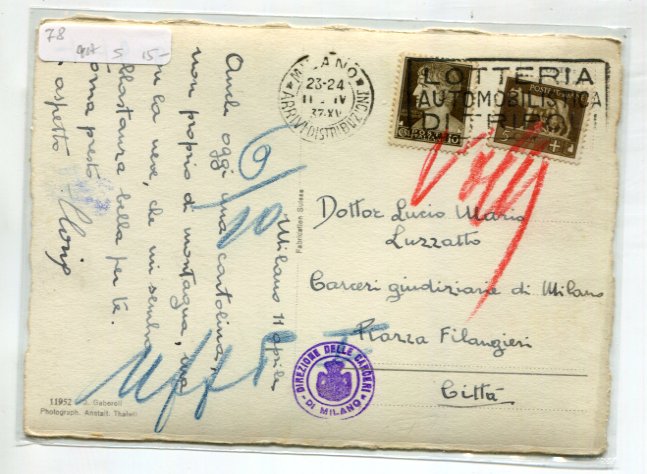 78
9x4 5 15-
MILANO
23-24
11 IV
37·XV
ARRIVI DISTRIBUZ
LOTTERIA
AUTOMOBILISTICA
DI TRIPO
POSTE
Milano 11 aprile
Anche oggi una cartolina,
non proprio di montagna, ma
la neve, che mi sembra
abbastanza bella per te.
presto
aspetto
Dottor Lucio Mario
Luzzatto
Carceri giudiziarie di Milano
Piazza Filangieri
Città
DIREZIONE DELLE CARCERI
DI MILANO
Fabrication Suisse
11952 J. Gaberell
Photograph. Anstalt. Thalwil